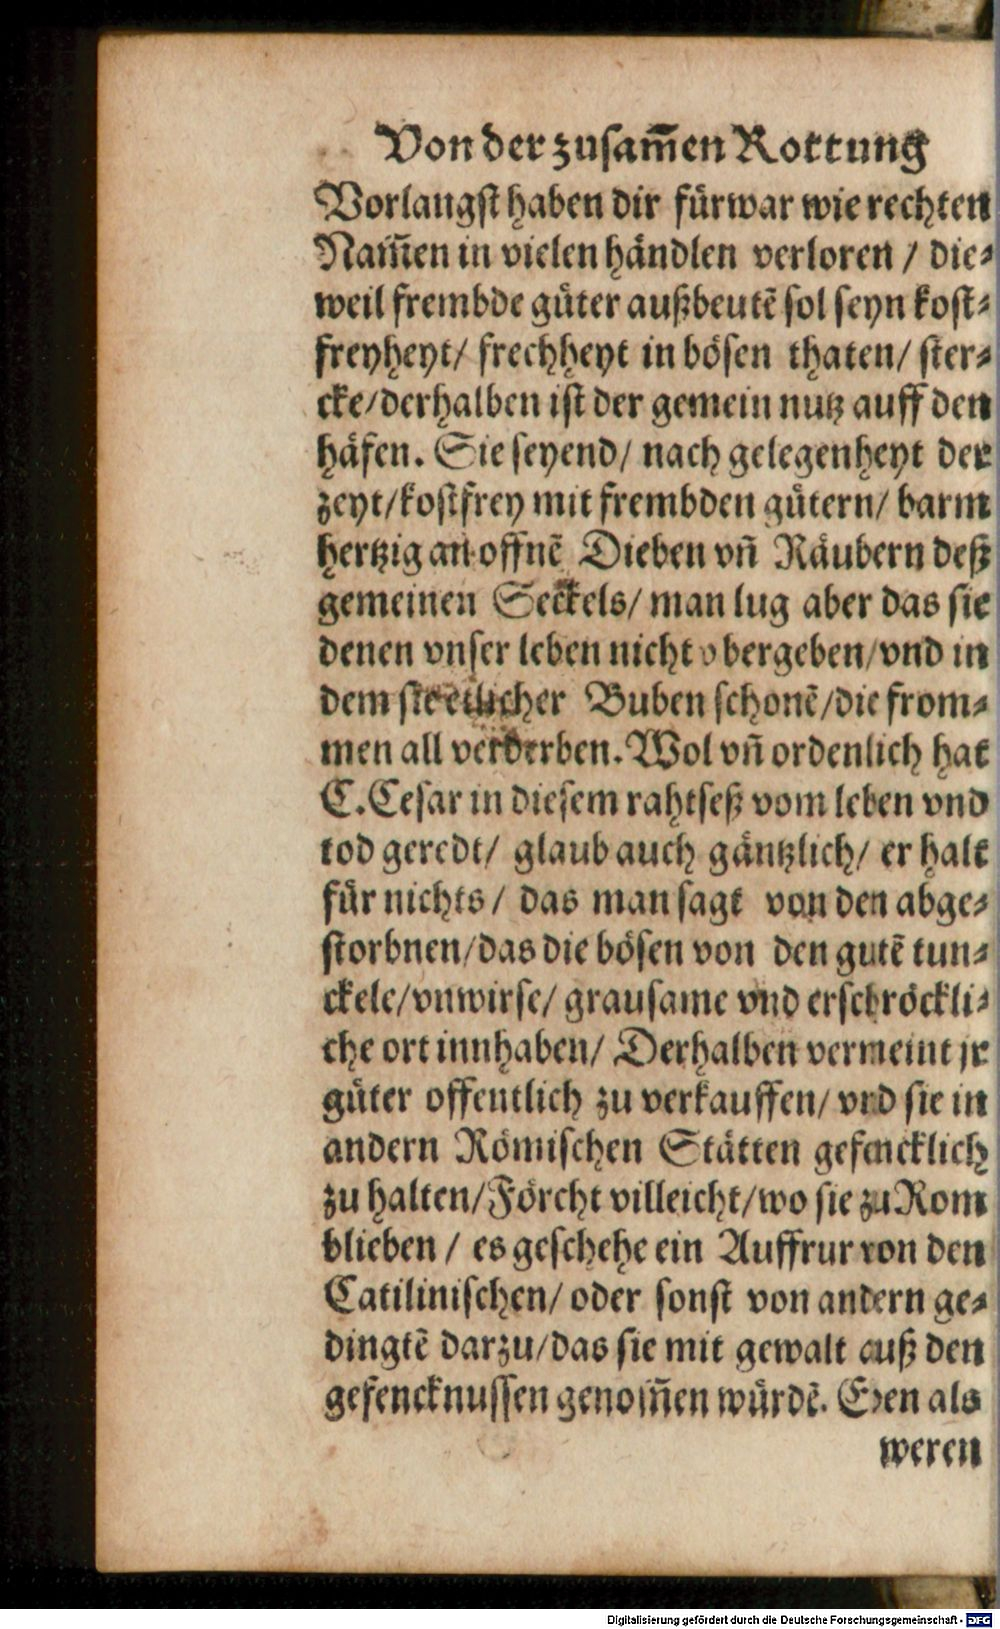 Von der zusam̄en Rottung
Vorlangst haben dir fürwar wie rechten
Nam̄en in vielen händlen verloren / die⸗
weil frembde güter außbeutẽ sol seyn kost⸗
freyheyt/ frechheyt in bösen thaten/ ster⸗
cke/derhalben ist der gemein nutz auff den
häfen. Sie seyend/ nach gelegenheyt der
zeyt/kostfrey mit frembden gütern/ barm
hertzig an offnẽ Dieben vñ Räubern deß
gemeinen Seckels/ man lug aber das sie
denen vnser leben nicht vbergeben/vnd in
dem Buben schonẽ/die from⸗
men all verderben. Wol vñ ordenlich hat
C.Cesar in diesem rahtseß vom leben vnd
tod geredt/ glaub auch gäntzlich/ er halt
für nichts/ das man sagt von den abge⸗
storbnen/das die bösen von den gutẽ tun⸗
ckele/vnwirse/ grausame vnd erschröckli⸗
che ort innhaben/ Derhalben vermeint jr
güter offentlich zu verkauffen/ vnd sie in
andern Römischen Stätten gefencklich
zu halten/Förcht villeicht/wo sie zu Rom
blieben / es geschehe ein Auffrur von den
Catilinischen/ oder sonst von andern ge⸗
dingtẽ darzu/das sie mit gewalt auß den
gefencknussen genom̄en würdẽ. Eben als
weren
Digitalisierung gefördert durch die Deutsche Forschungsgemeinschaft - DFG